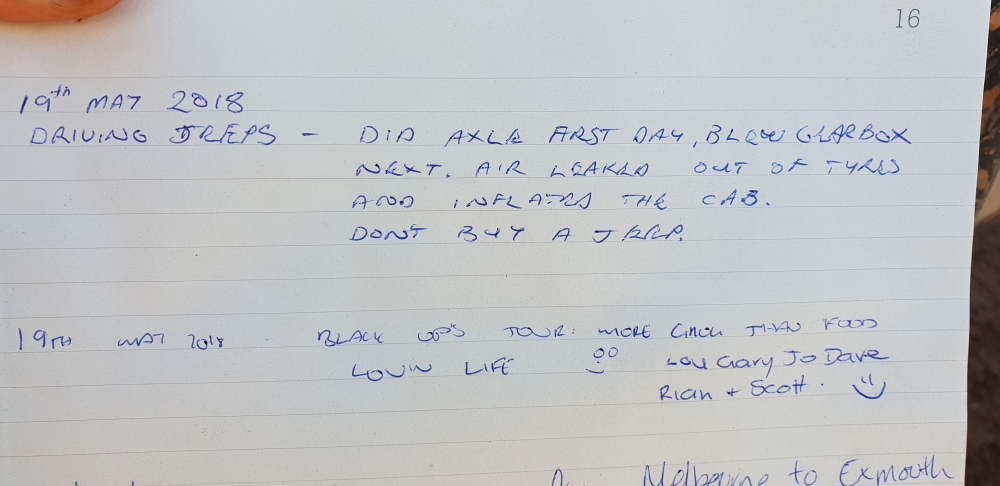 16
19th MAY 2018
DRIVING JEEPS - DID AXLE FIRST DAY, BLEW GEARBOX
NEXT. AIR LEAKED OUT OF TYRES
AND INFLATED THE CAB.
DONT BUY A JEEP.
19TH MAY 2018 - BLACK OPS TOUR: MORE THAN FOOD
LOVIN LIFE Lou Gary Jo Dave
Rian + Scott.
Melbourne to Exmouth